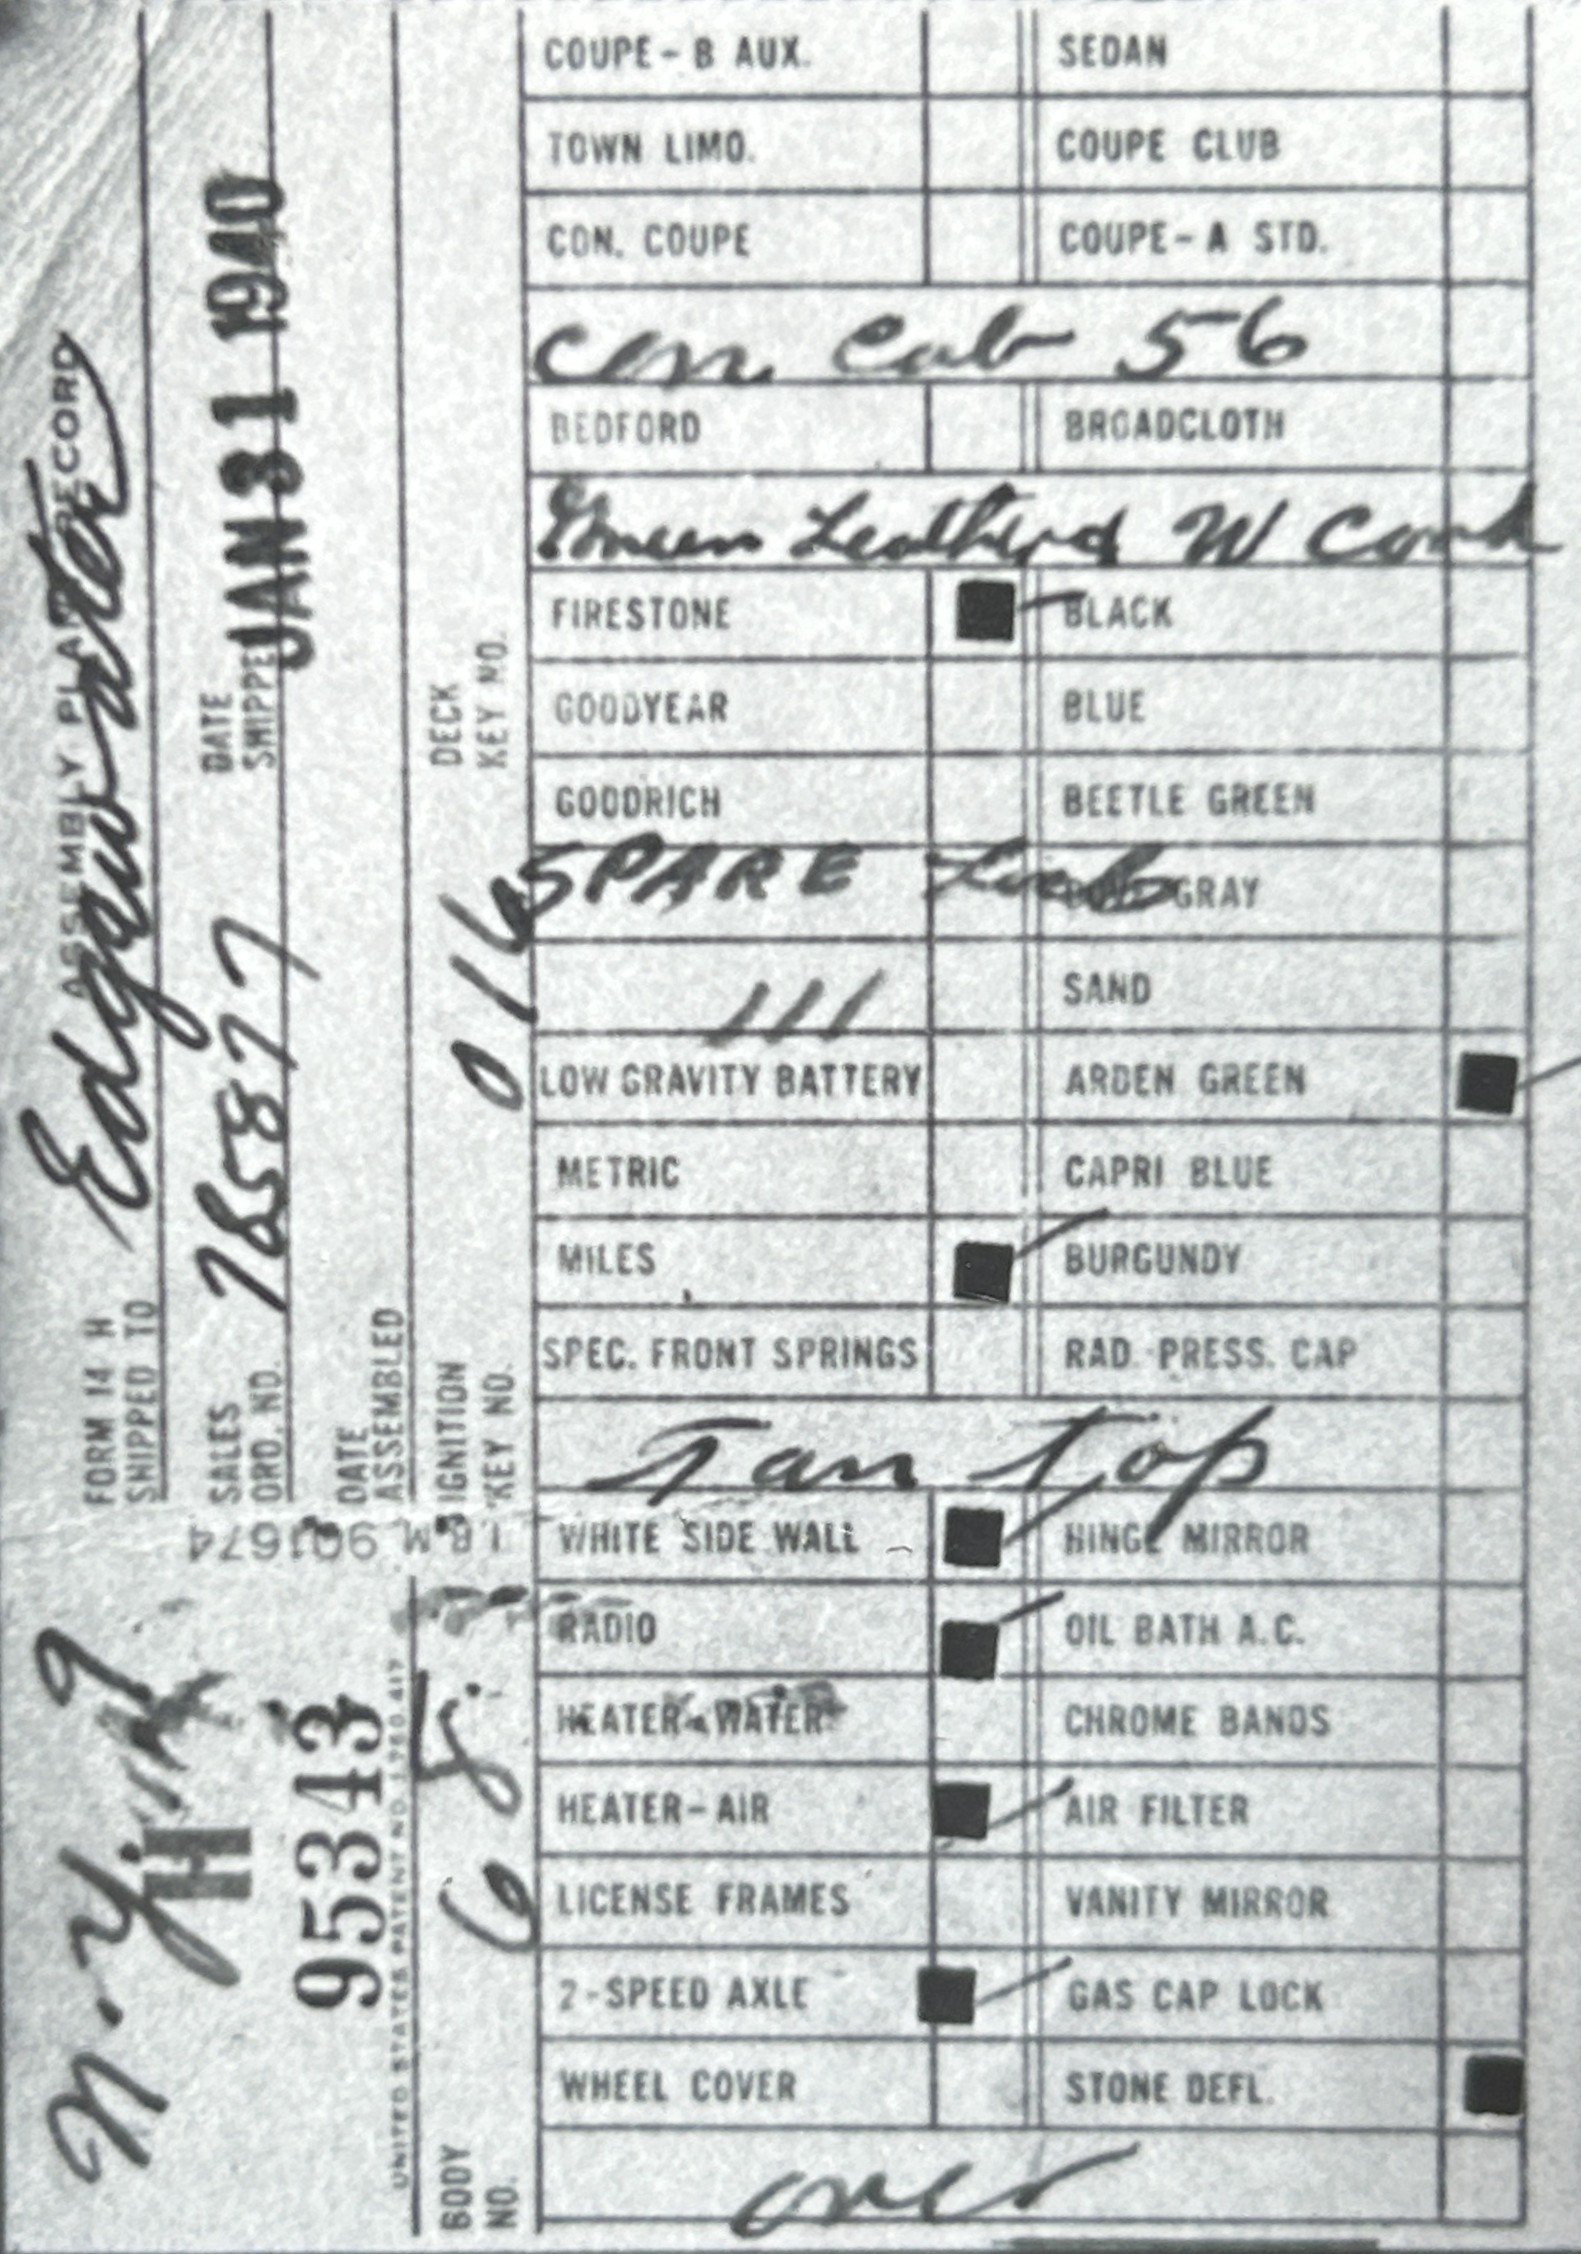 FORM 14 H ASSEMBLY PLANT RECORD
SHIPPED TO Edgewater
SALES ORD. NO. 76587
DATE SHIPPED JAN 31 1940
DATE ASSEMBLED
IGNITION KEY NO. 016
DECK KEY NO.
I.B.M. 901674
N.Y.
H
95343
UNITED STATES PATENT NO. 1,750,417
BODY NO. 65
COUPE - B AUX. SEDAN
TOWN LIMO. COUPE CLUB
CON. COUPE COUPE - A STD.
Con. Cab 56
BEDFORD BROADCLOTH
Green Leather W Cord
FIRESTONE BLACK
GOODYEAR BLUE
GOODRICH BEETLE GREEN
SPARE GRAY
111 SAND
LOW GRAVITY BATTERY ARDEN GREEN
METRIC CAPRI BLUE
MILES BURGUNDY
SPEC. FRONT SPRINGS RAD. PRESS. CAP
Tan Top
WHITE SIDE WALL HINGE MIRROR
RADIO OIL BATH A.C.
HEATER - WATER CHROME BANDS
HEATER - AIR AIR FILTER
LICENSE FRAMES VANITY MIRROR
2-SPEED AXLE GAS CAP LOCK
WHEEL COVER STONE DEFL.
over